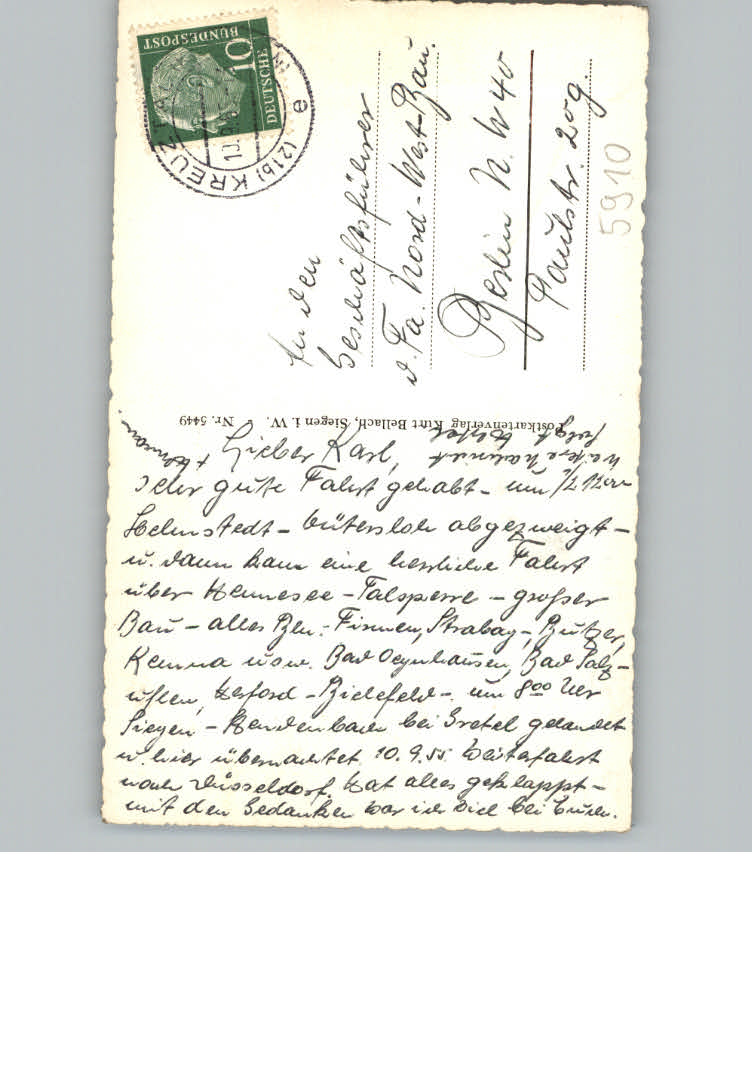 DEUTSCHE
BUNDESPOST
10
(21b) KREUZTAL
e
An den
Geschäftsführer
d. Fa. Nord-West-Bau.
Berlin N.W 40
Paulstr. 20g.
5910
Postkartenverlag Kurt Bellach, Siegen i. W. • Nr. 5449
Lieber Karl,
Sehr gute Fahrt gehabt - um 1/2 12 Uhr
Helmstedt - Gütersloh abgezweigt -
u. dann kam eine herrliche Fahrt
über Hennesee - Talsperre - großer
Bau - alles Bln.-Firmen, Strabag-, Butzer,
Kemna usw. Bad Oeynhausen, Bad Salz-
uflen, Herford - Bielefeld -. um 8 00 Uhr
Siegen - bei Gretel gelandet
u. hier übernachtet. 10.9.55 Weiterfahrt
nach Düsseldorf. Hat alles geklappt -
mit den Gedanken war ich viel bei Euch.
folgt